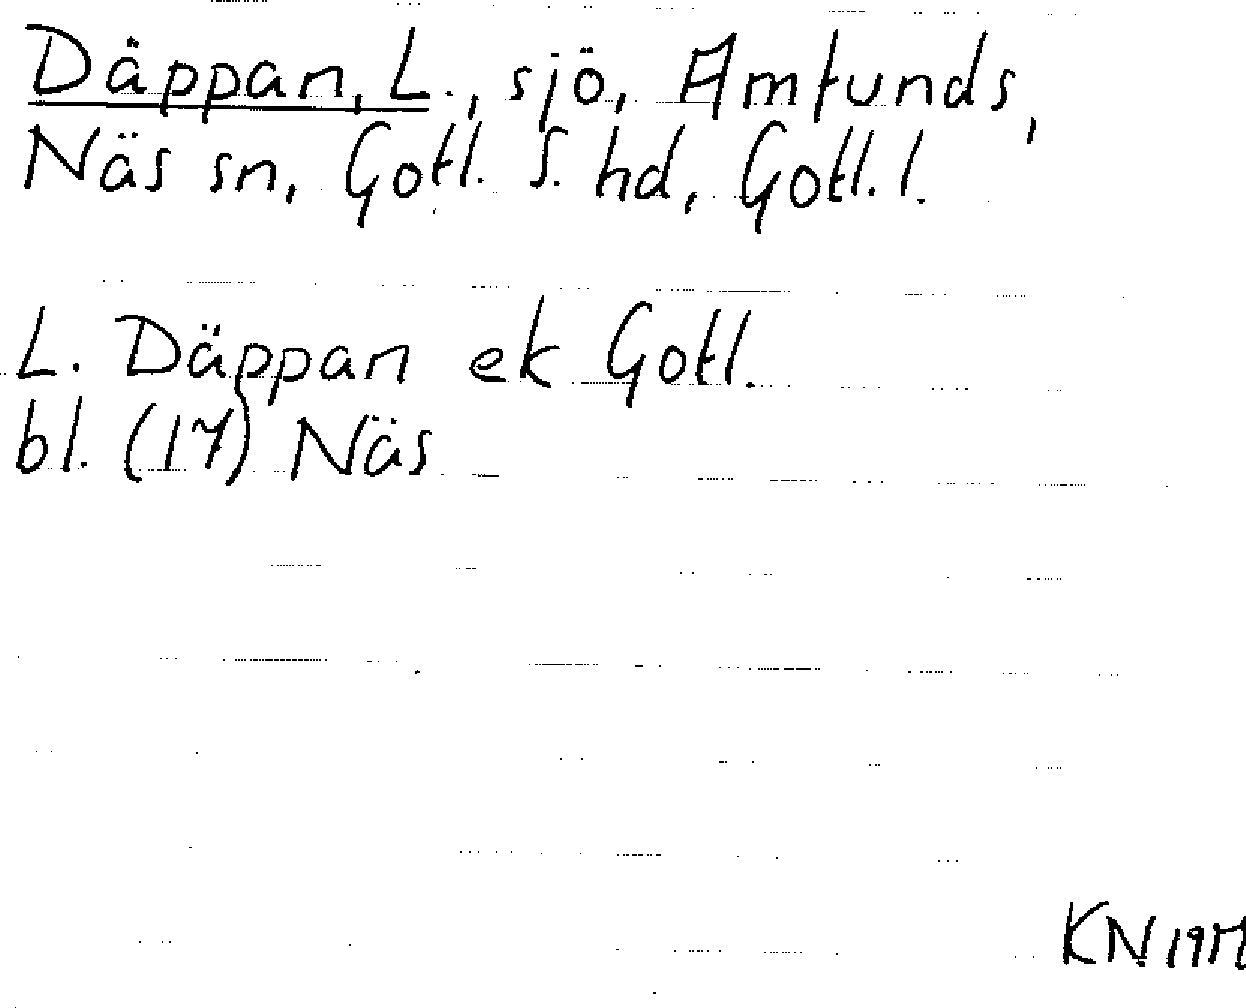 Däppan, L., sjö, Amtunds,
Näs sn, Gotl. S. hd, Gotl. l.
L. Däppan ek Gotl.
bl. (17) Näs
KN